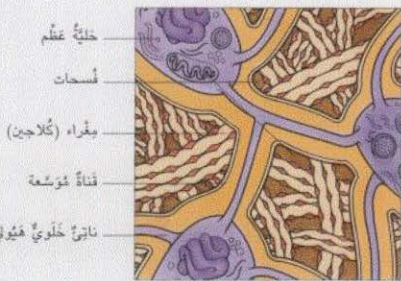 خَليَّةُ عَظْم
فُسحات
مِغْراء (كُلاجين)
قَناةٌ مُوَسَّعة
ناتِئٌ خَلَويٌّ